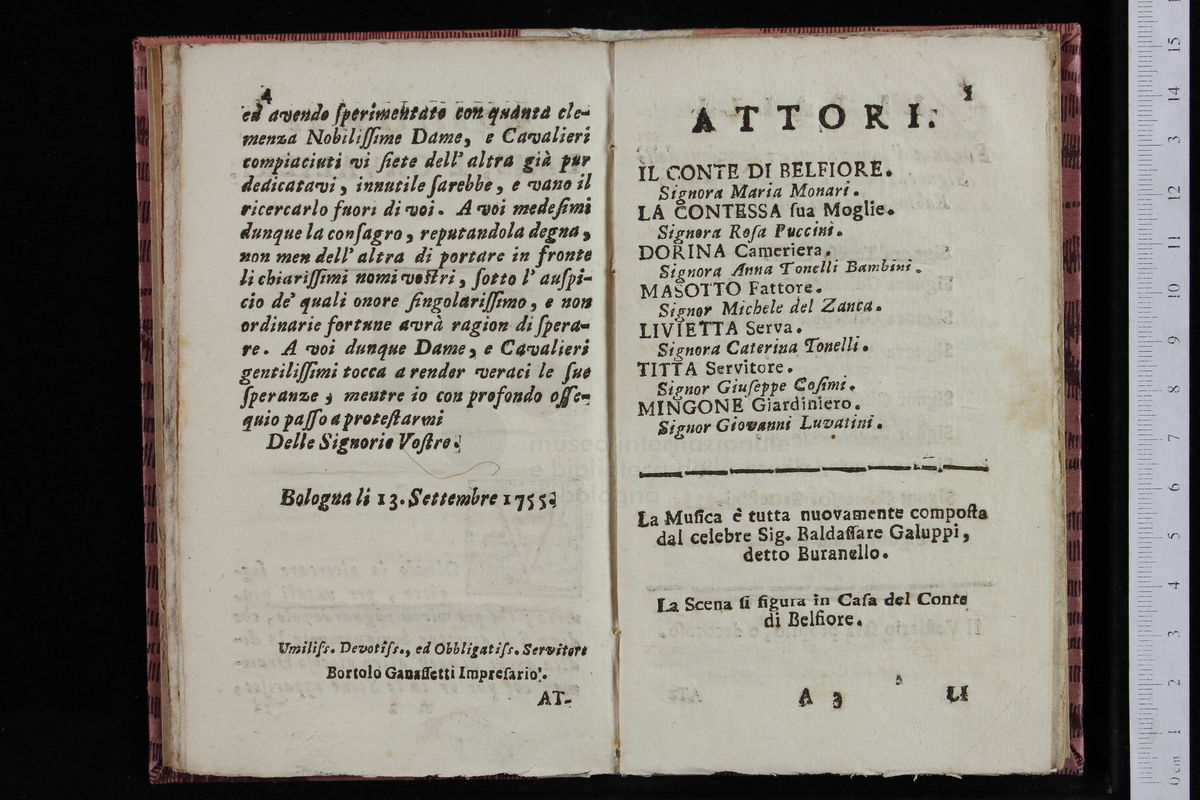 4
ed avendo ſperimentato con quanta cle-
menza Nobiliſſime Dame, e Cavalieri
compiaciuti vi ſiete dell' altra già pur
dedicatavi, innutile ſarebbe, e vano il
ricercarlo fuori di voi. A voi medeſimi
dunque la conſagro, reputandola degna,
non men dell' altra di portare in fronte
li chiariſſimi nomi voſtri, ſotto l' auſpi-
cio de' quali onore ſingolariſſimo, e non
ordinarie fortune avrà ragion di ſpera-
re. A voi dunque Dame, e Cavalieri
gentiliſſimi tocca a render veraci le ſue
ſperanze, mentre io con profondo oſſe-
quio paſſo a proteſtarmi
Delle Signorie Voſtre.
Bologna li 13. Settembre 1755.
Umiliſs. Devotiſs., ed Obbligatiſs. Servitore
Bortolo Ganaſſetti Impreſario.
AT-
ATTORI.
IL CONTE DI BELFIORE.
Signora Maria Monari.
LA CONTESSA ſua Moglie.
Signora Roſa Puccini.
DORINA Cameriera.
Signora Anna Tonelli Bambini.
MASOTTO Fattore.
Signor Michele del Zanca.
LIVIETTA Serva.
Signora Caterina Tonelli.
TITTA Servitore.
Signor Giuſeppe Coſimi.
MINGONE Giardiniero.
Signor Giovanni Luvatini.
La Muſica è tutta nuovamente compoſta
dal celebre Sig. Baldaſſare Galuppi,
detto Buranello.
La Scena ſi figura in Caſa del Conte
di Belfiore.
A 3 LI
museo internazionale
e biblioteca
bologna
0 cm 1 2 3 4 5 6 7 8 9 10 11 12 13 14 15